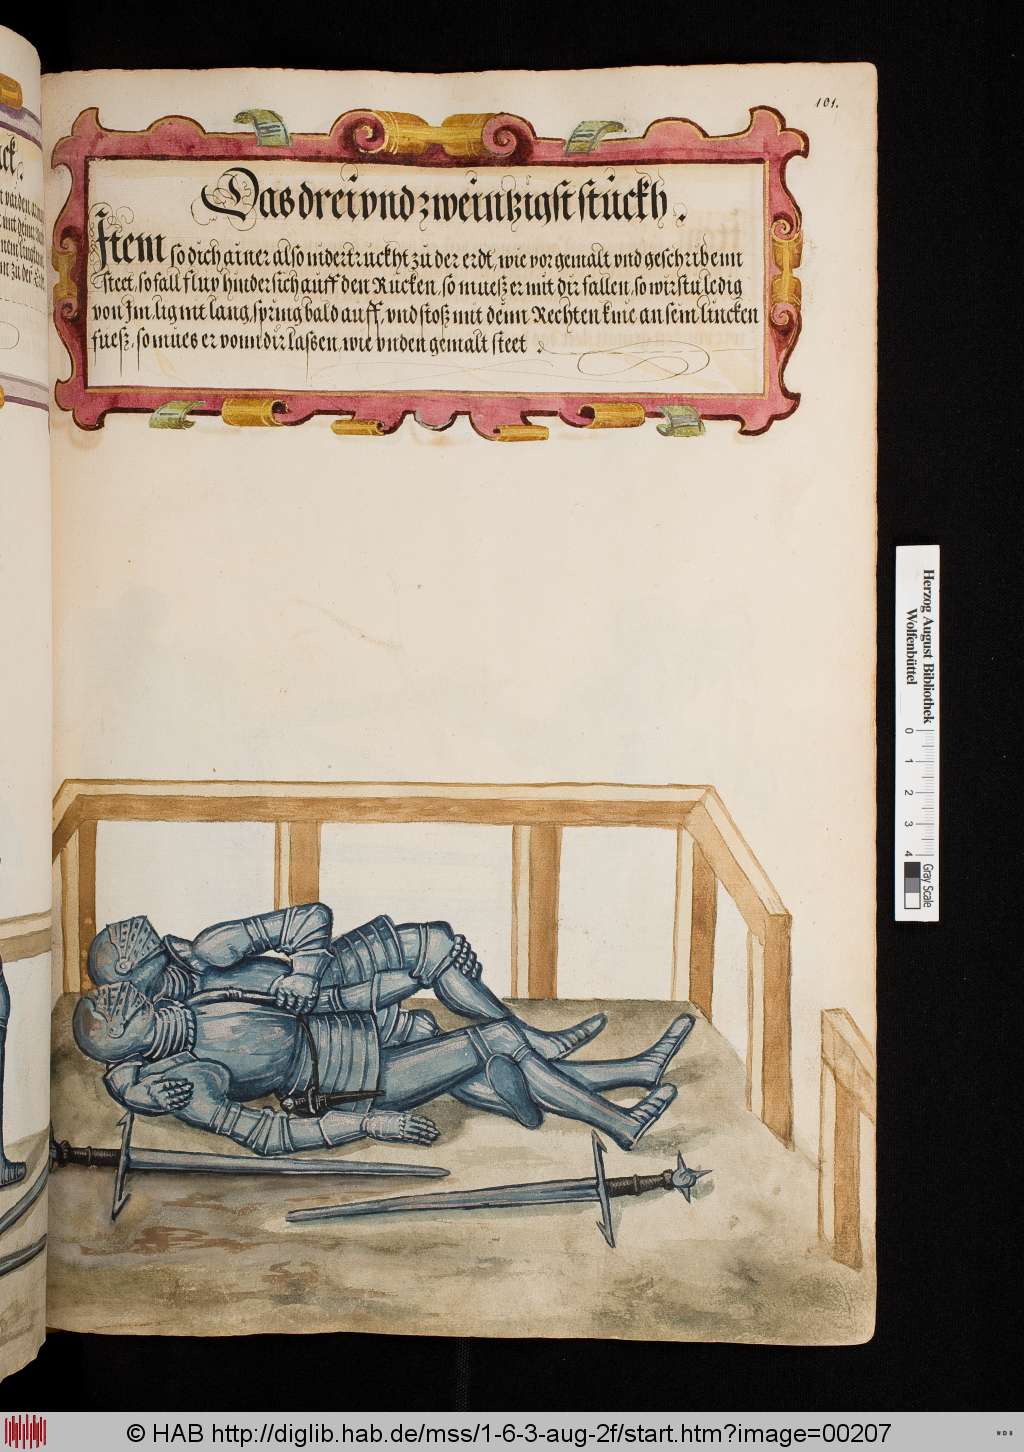 101.
Das drei vnd zweintzigst stuckh.
Item so dich ainer also nidertruckht zu der erdt, wie vor gemalt vnd geschribenn
steet, so fall flux hindersich auff den Rucken, so mueß er mit dir fallen, so wirstu ledig
von Im, lig nit lang, spring bald auff, vnd stoß mit deim Rechten knie an sein lincken
fueß, so mues er vonn dir laßen, wie vnden gemalt steet.
Herzog August Bibliothek
Wolfenbüttel
0 1 2 3 4
Gray Scale
© HAB http://diglib.hab.de/mss/1-6-3-aug-2f/start.htm?image=00207